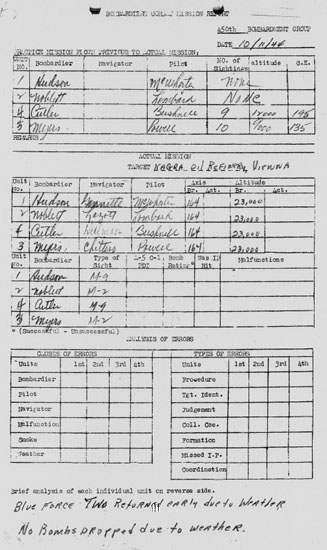 BOMBARDIERS COMBAT MISSION REPORT
450th BOMBARDMENT GROUP
DATE 10/11/44
PRACTICE MISSION FLOWN PREVIOUS TO ACTUAL MISSION:
Unit No. Bombardier Navigator Pilot NO. of Sightings altitude C.E.
1 Hudson McWhorter None
2 Noblett Lombard None
4 Cutler Bushnell 9 12000 195
3 Meyers Powell 10 9000 135
REMARKS:
ACTUAL MISSION
TARGET Oil Refinery, Vienna
Unit No. Bombardier Navigator Pilot Axis Br. Act. Altitude Br. Act.
1 Hudson McWhorter 164 23,000
2 Noblett Lombard 164 23,000
4 Cutler Bushnell 164 23,000
3 Meyers Powell 164 23,000
Unit No. Bombardier Type of Sight Bomb Rating* Was IP Hit Malfunctions
1 Hudson M-9
2 Noblett M-2
4 Cutler M-9
3 Meyers M-2
* (Successful - Unsuccessful)
ANALYSIS OF ERRORS
CAUSES OF ERRORS TYPES OF ERRORS
Units 1st 2nd 3rd 4th Units 1st 2nd 3rd 4th
Bombardier Procedure
Pilot Tgt. Ident.
Navigator Judgement
Malfunction Coll. Cse.
Smoke Formation
Weather Missed I.P.
Coordination
Brief analysis of each individual unit on reverse side.
Blue Force Two Returned early due to Weather
No Bombs Dropped due to weather.